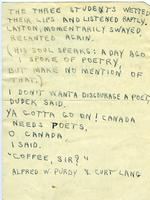 THE THREE STUDENTS WETTED
THEIR LIPS AND LISTENED RAPTLY.
LAYTON, MOMENTARILY SWAYED,
RECANTED AGAIN.
(HIS SOUL SPEAKS: A DAY AGO
I SPOKE OF POETRY,
BUT MAKE NO MENTION OF
THAT.)
I DON'T WANTA DISCOURAGE A POET,
DUDEK SAID.
YA GOTTA GO ON! CANADA
NEEDS POETS,
O CANADA,
I SAID.
"COFFEE, SIR?"
ALFRED W. PURDY & CURT LANG